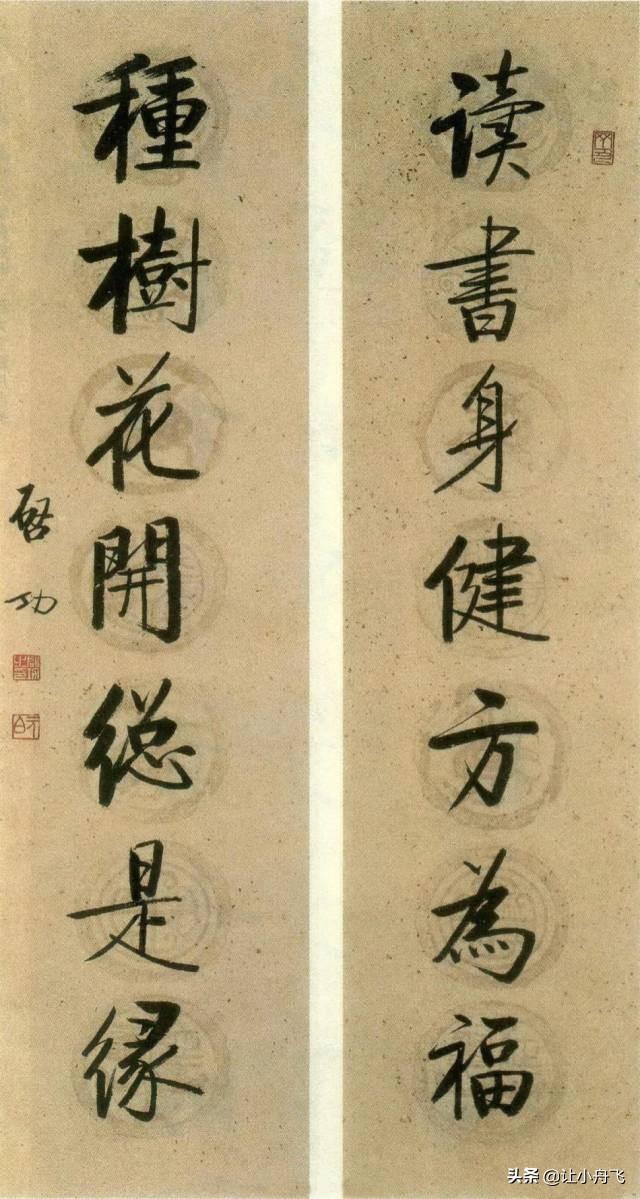 读書身健方為福
種樹花開總是緣
啓功
头条 @让小舟飞